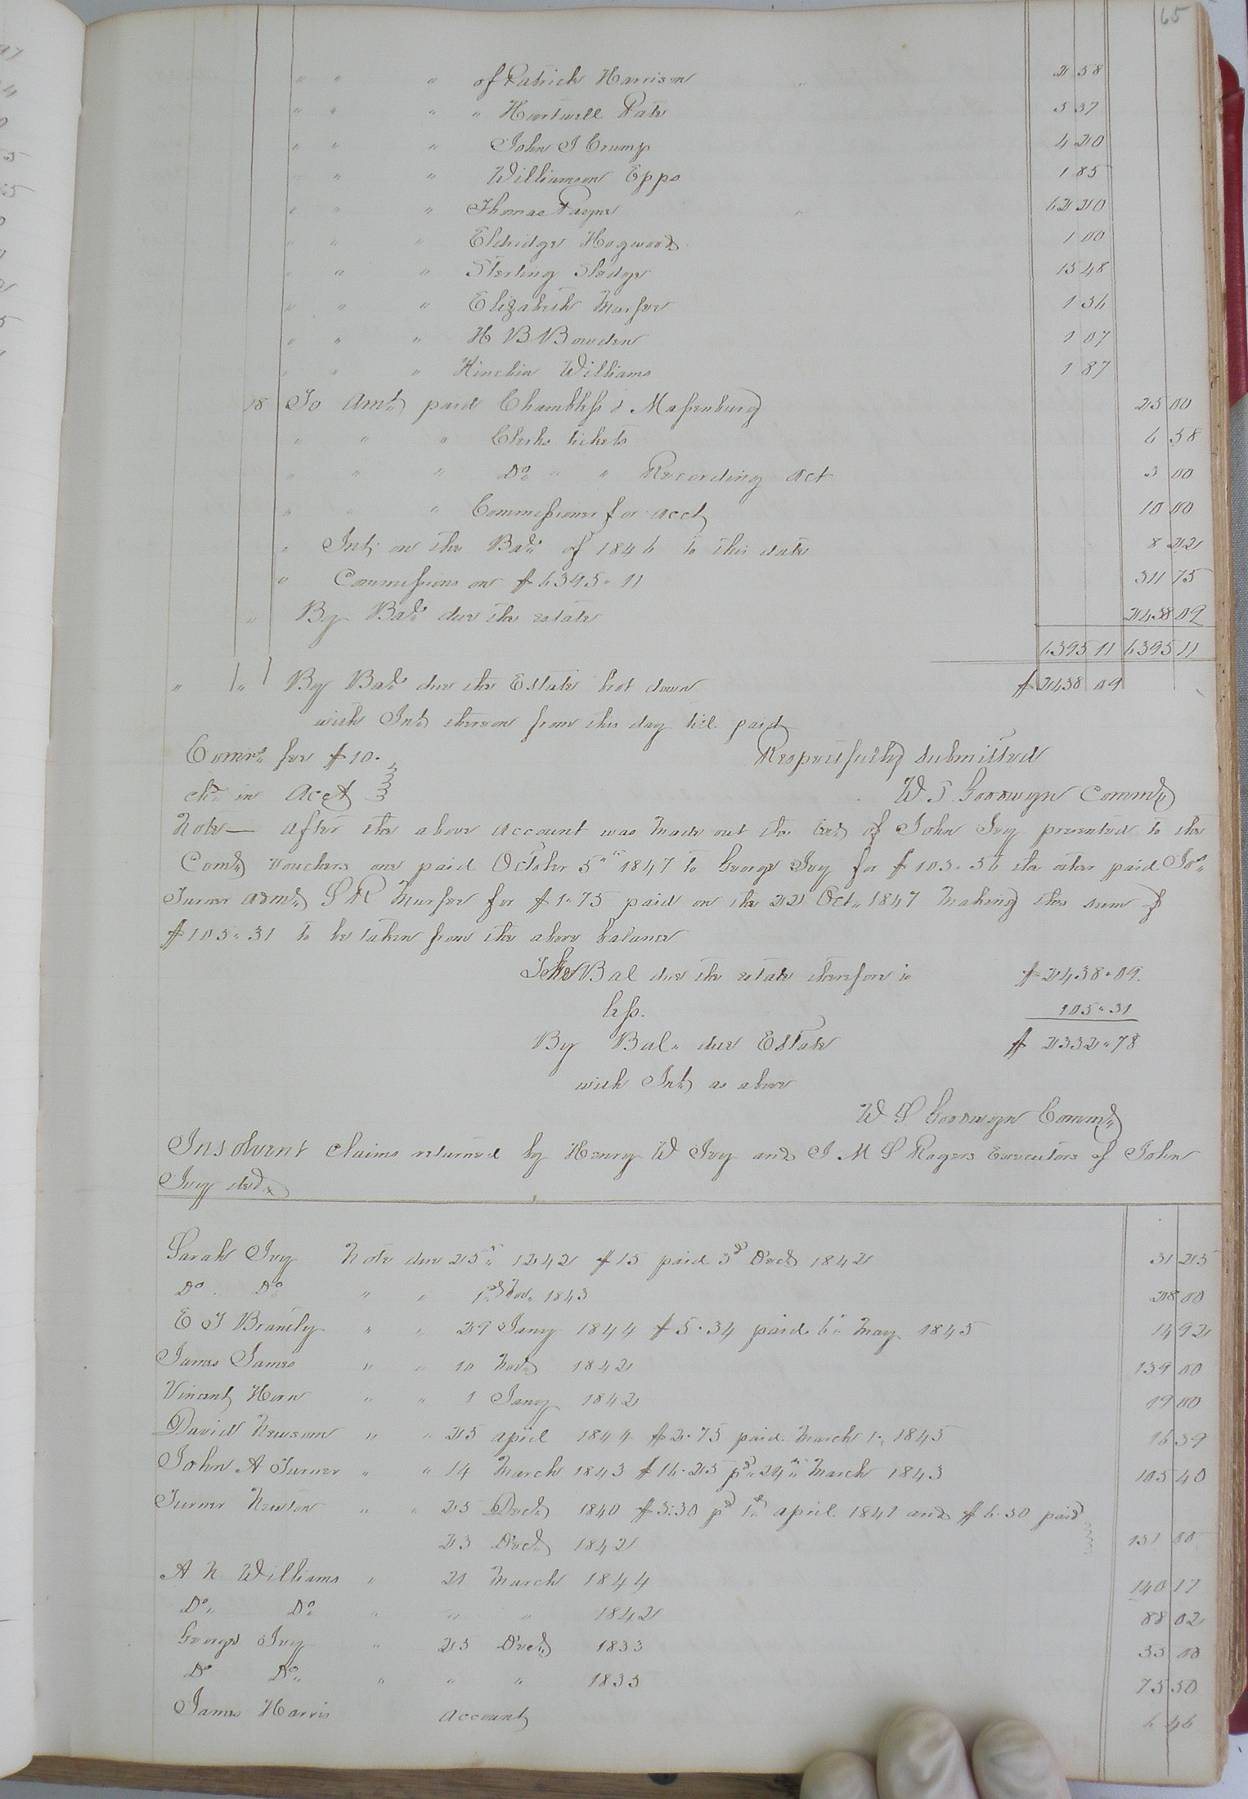 65
" " " of Patrick Harrison 2 58
" " " " Hartwell Pate 5 37
" " " John J Crump 4 20
" " " Williamson Epps 1 85
" " " Thomas Payne 62 20
" " " Eldridge Hogwood 1 00
" " " Sterling Sledge 15 48
" " " Elizabeth 1 36
" " " H B Bowden 1 07
" " " Hinchia Williams 1 87
18 To Amt paid Chambliss & Massenburg 25 00
" " " Clerks tickets 6 58
" " " Do " " Recording Act 3 00
" " " Commissioner for acct 10 00
" Int on the Bal of 1846 to this date 8 22
" Commissions on $6395.11 311 75
" By Bal due the estate 2438 09
6395 11 6395 11
" " By Bal due the Estate bot down $2438 09
with Int thereon from this day till paid
Comrs fee $10. Respectfully submitted
chd in Acct W S Goodwyn Commr
Note— After the above account was made out the Exs of John Ivy presented to the
Comr vouchers one paid October 5th 1847 to George Ivy for $103.56 the other paid Jno
Turner admr S R for $1.75 paid on the 22 Oct 1847 Making the sum of
$105.31 to be taken from the above balance
The Bal due the estate therefore is $2438.09
less. 105.31
By Bal due Estate $2332.78
with Int as above
W S Goodwyn Commr
Insolvent claims returned by Henry W Ivy and J M S Rogers Executors of John
Ivy decd
Sarah Ivy Note due 25th 1242 $15 paid 3d Decr 1842 31 25
Do Do " " 1st Nov 1843 28 00
E J Brantly " " 29 Jany 1844 $5.34 paid 6th May 1845 14 92
James James " " 10 Nov 1842 139 00
Vincent Horn " " 1 Jany 1842 19 00
David Newsom " " 25 april 1844 $2.75 paid March 1st 1845 16 39
John A Turner " " 14 March 1843 $16.25 pd 24th March 1843 105 40
Turner Newton " " 25 Decr 1840 $3.30 pd 1st april 1841 and $6.50 paid
23 Decr 1842 151
A N Williams " 21 March 1844 140 17
Do Do " " " 1842 88 02
George Ivy " 25 Decr 1833 35 00
Do Do " " " 1835 75 50
James Harris Account 6 46